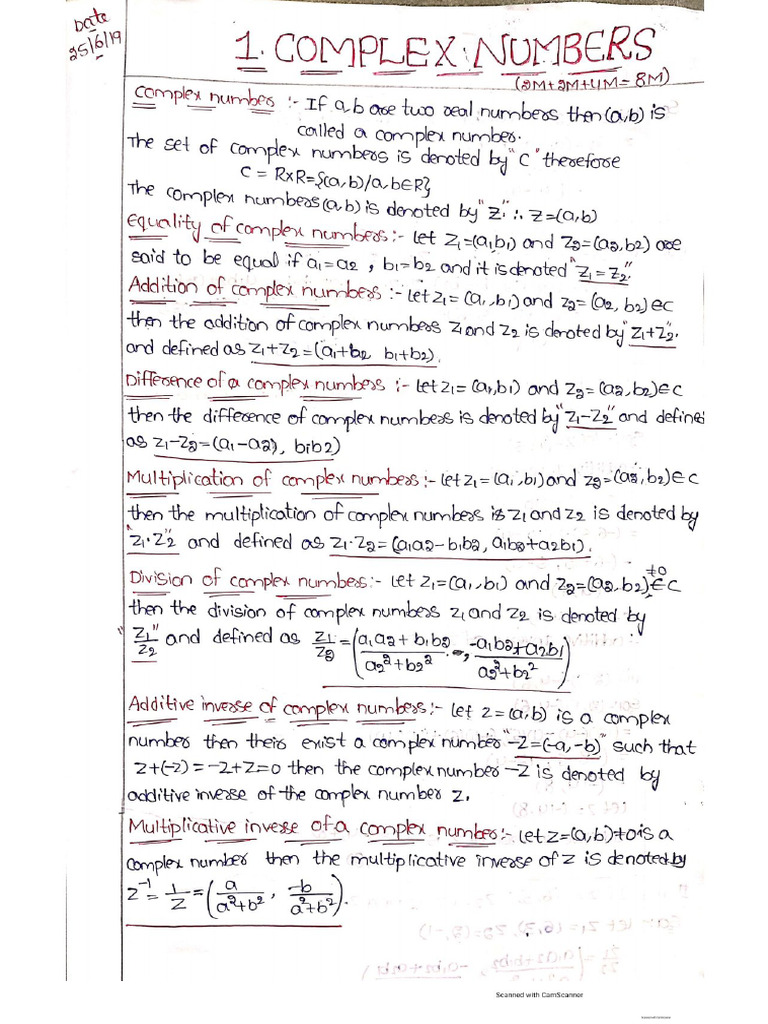 Date
25/6/19
1. COMPLEX NUMBERS
(2M+2M+4M= 8M)
Complex number :- If a,b are two real numbers then (a,b) is
called a complex number.
The set of complex numbers is denoted by "C" therefore
C = R×R={(a,b)/a,b∈R}
The complex numbers(a,b) is denoted by "Z" ∴ Z=(a,b)
Equality of complex numbers:- let Z1=(a1b1) and Z2=(a2,b2) are
said to be equal if a1=a2 , b1=b2 and it is denoted "Z1=Z2"
Addition of complex numbers :- Let Z1=(a1,b1) and Z2=(a2,b2)∈C
then the addition of complex numbers Z1 and Z2 is denoted by "Z1+Z2".
and defined as Z1+Z2=(a1+b2 b1+b2).
Difference of a complex numbers :- let Z1=(a1,b1) and Z2=(a2,b2)∈C
then the difference of complex numbers is denoted by "Z1-Z2" and define
as Z1-Z2=(a1-a2), b1b2)
Multiplication of complex numbers:- let Z1=(a1,b1) and Z2=(a2,b2)∈C
then the multiplication of complex numbers is Z1 and Z2 is denoted by
"Z1.Z2" and defined as Z1.Z2=(a1a2-b1b2, a1b2+a2b1).
Division of complex numbers:- Let Z1=(a1,b1) and Z2=(a2,b2)≠0∈C
then the division of complex numbers Z1 and Z2 is denoted by
"Z1/Z2" and defined as Z1/Z2=(a1a2+b1b2/a2²+b2², -a1b2+a2b1/a2²+b2²)
Additive inverse of complex numbers:- let Z=(a,b) is a complex
number then their exist a complex number "-Z=(-a,-b)" such that
Z+(-Z)=-Z+Z=0 then the complex number -Z is denoted by
additive inverse of the complex number Z.
Multiplicative inverse of a complex number:- Let Z=(a,b)≠0 is a
complex number then the multiplicative inverse of Z is denoted by
Z⁻¹=1/Z=(a/a²+b², -b/a²+b²).
Scanned with CamScanner